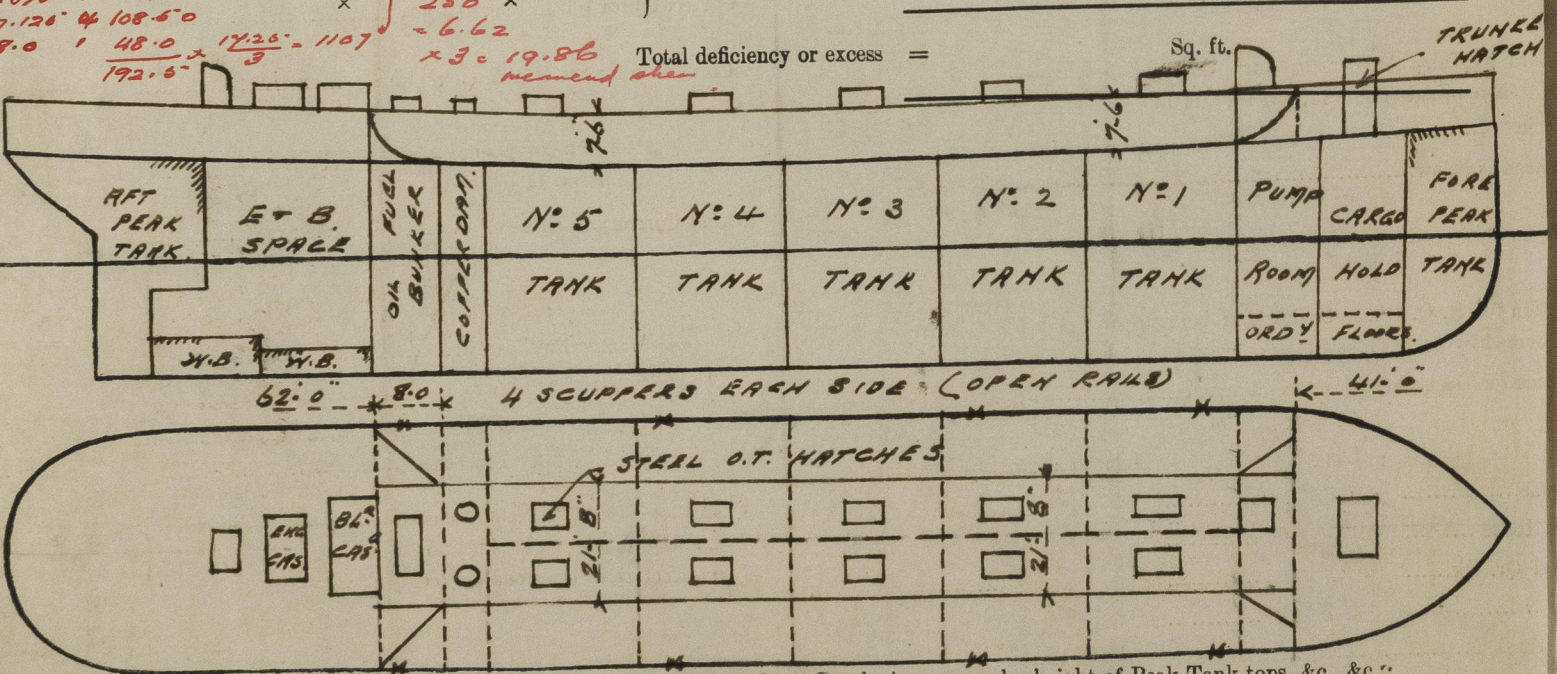 7.125 & 108.50
250
48.0 × 17.25 = 1107
192.5 3
= 6.62
× 3 = 19.86
Total deficiency or excess =
Sq. ft.
TRUNK HATCH
7'-6"
7'-6"
AFT PEAK TANK
E & B. SPACE
OIL FUEL BUNKER
COFFERDAM.
Nº 5 TANK
Nº 4 TANK
Nº 3 TANK
Nº 2 TANK
Nº 1 TANK
PUMP ROOM
CARGO HOLD
FORE PEAK TANK
ORDY FLOORS.
W.B.
W.B.
62'-0"
8.0
4 SCUPPERS EACH SIDE (OPEN RAILS)
41'-0"
STEEL O.T. HATCHES
ENG CAS.
BLR CASG
21'-8"
21'-8"
height of Peak Tank tops, &c., &c.: